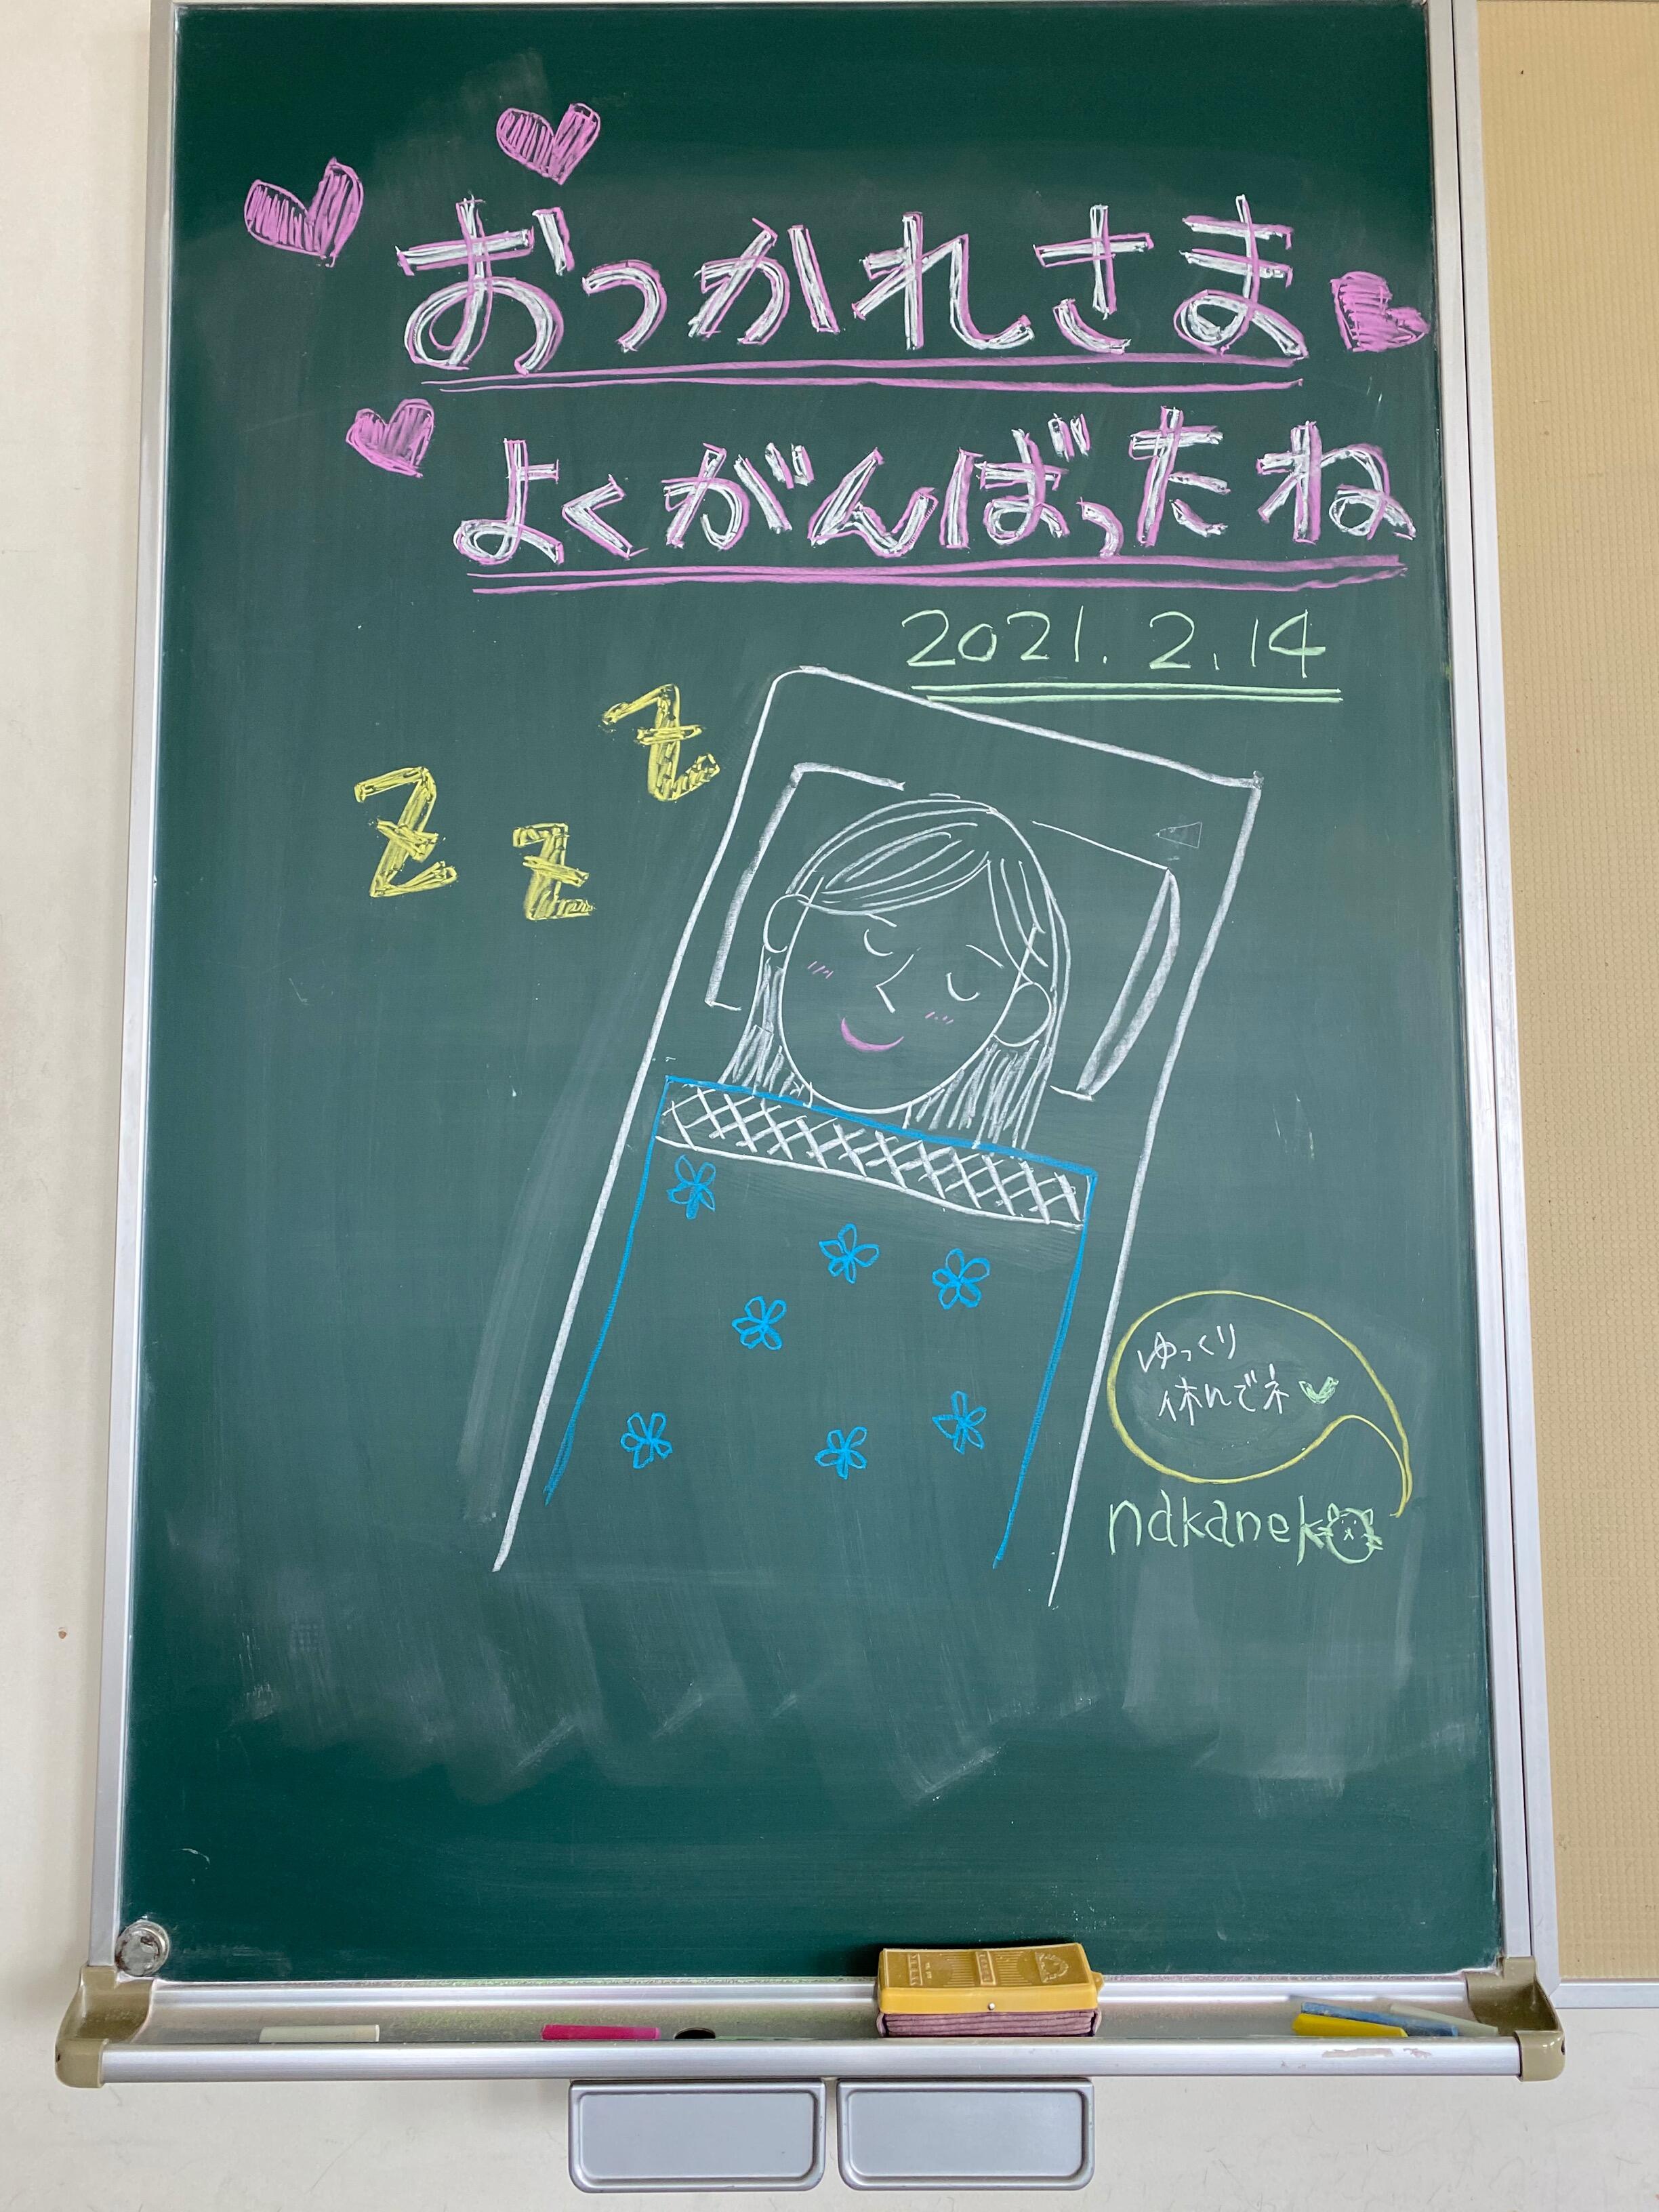 おつかれさま
よくがんばったね
2021.2.14
Z Z Z
ゆっくり
休んでネ
nakaneko